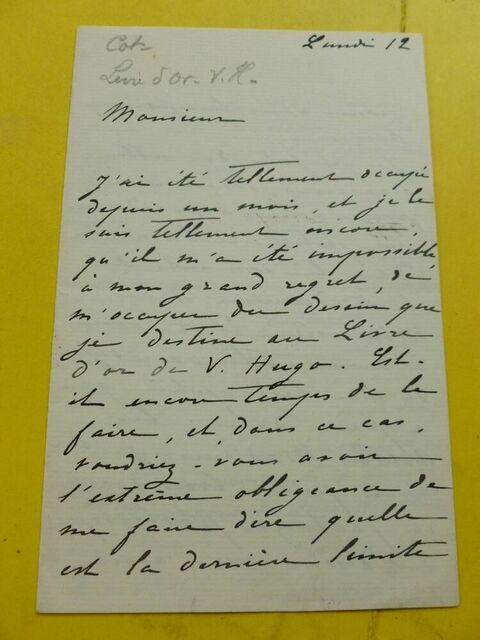 Cot
Livre d'Or - V. H.
Lundi 12
Monsieur
J'ai été tellement occupé
depuis un mois, et je le
suis tellement encore,
qu'il m'a été impossible
à mon grand regret, de
m'occuper du dessin que
je destine au Livre
d'or de V. Hugo. Est-
il encore temps de le
faire, et, dans ce cas,
voudriez-vous avoir
l'extrême obligeance de
me faire dire quelle
est la dernière limite